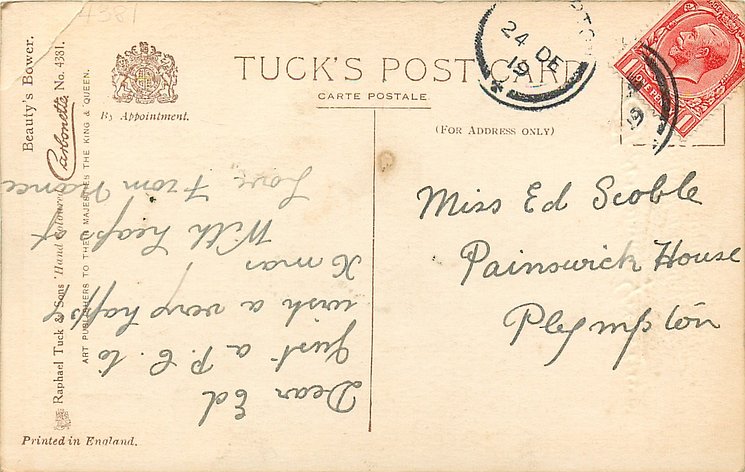 4381
Beauty's Bower.
Raphael Tuck & Sons' Hand Coloured Carbonette No. 4381.
ART PUBLISHERS TO THEIR MAJESTIES THE KING & QUEEN.
By Appointment.
TUCK'S POST CARD
CARTE POSTALE.
(FOR ADDRESS ONLY)
24 DE
19
ONE PENNY
Miss Ed Scoble
Painswick House
Plympton
Dear Ed
Just a P.C. to
wish a very happy
X mas
With heaps of
Love From
Printed in England.